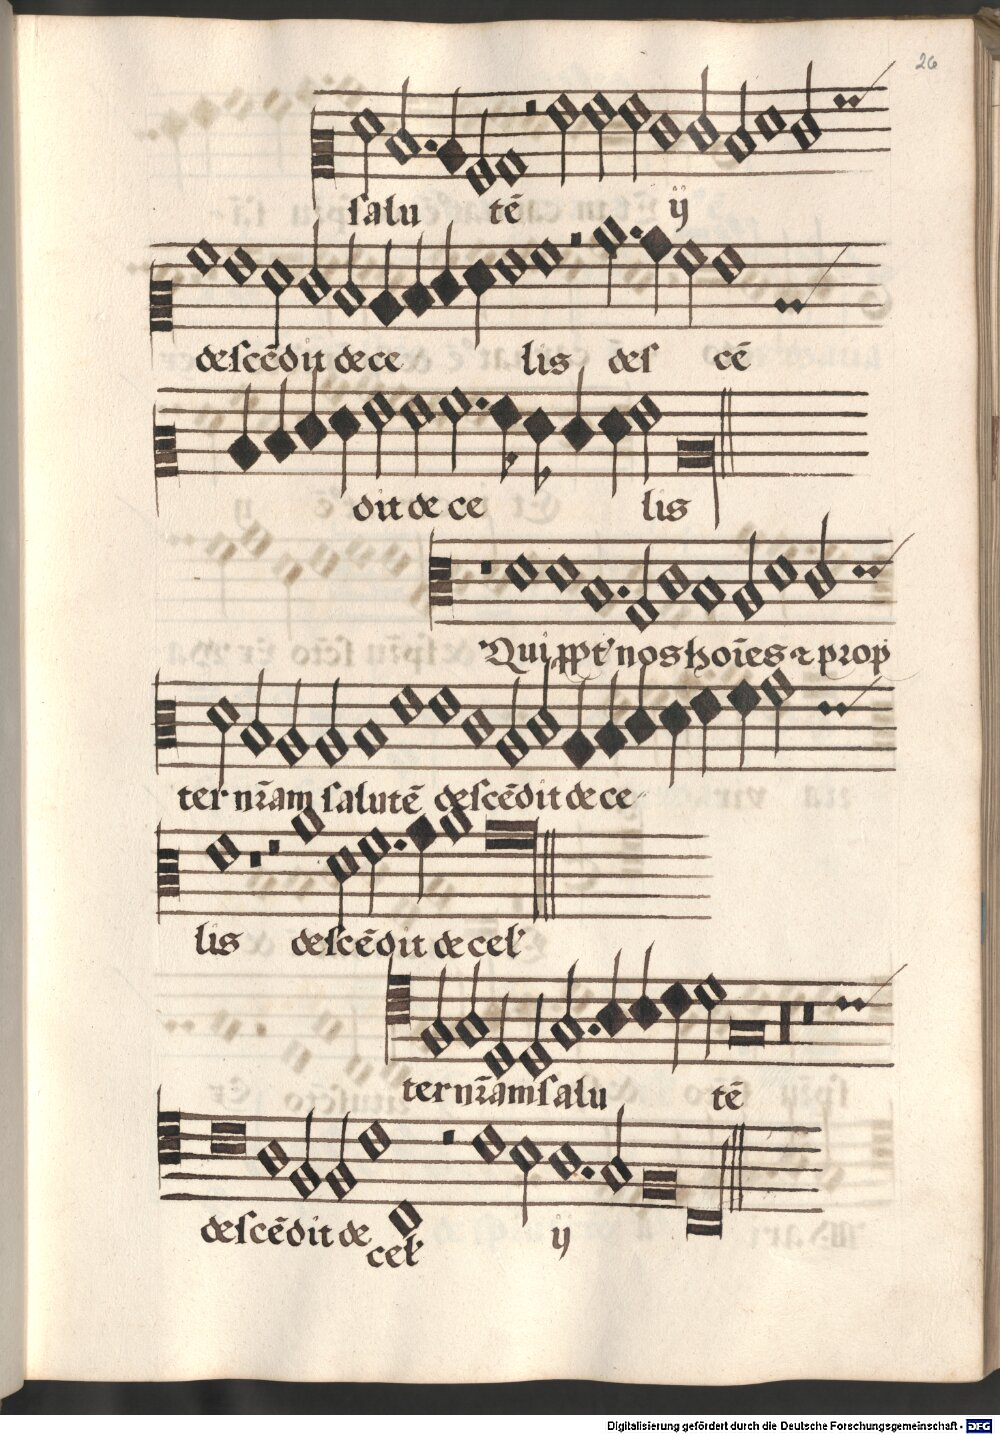 26
salu tē ij
descēdit de ce lis des cē
dit de ce lis
Qui ꝓpt' nos hoīes ⁊ prop
ter nr̄am salutē descēdit de ce
lis descēdit de cel'
ter nr̄am salu tē
descēdit de cel' ij
Digitalisierung gefördert durch die Deutsche Forschungsgemeinschaft - DFG